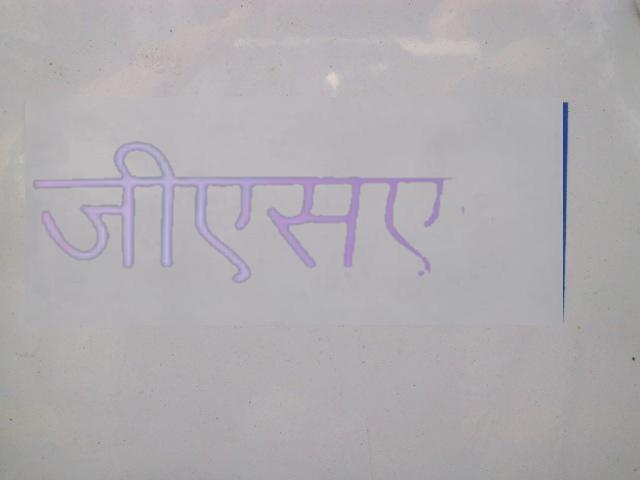 जीएसए